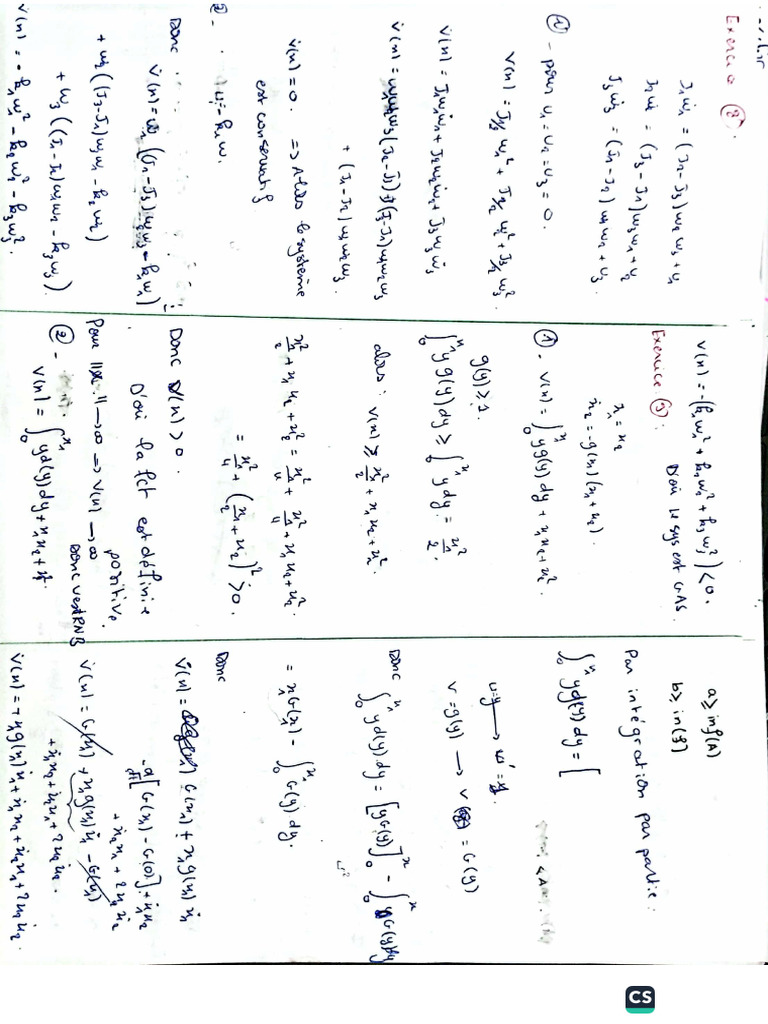 Exercice 2:
J₁ẇ₁ = (J₂ - J₃) w₂ w₃ + u₁
J₂ẇ₂ = (J₃ - J₁) w₃ w₁ + u₂
J₃ẇ₃ = (J₁ - J₂) w₁ w₂ + u₃
1 - pour u₁ = u₂ = u₃ = 0.
V(x) = J₁/2 w₁² + J₂/2 w₂² + J₃/2 w₃²
V̇(x) = J₁w₁ẇ₁ + J₂w₂ẇ₂ + J₃w₃ẇ₃
V̇(x) = w₁w₂w₃ (J₂ - J₃) + (J₃ - J₁) w₁w₂w₃
+ (J₁ - J₂) w₁w₂w₃.
V̇(x) = 0. ⇒ le système
est conservatif
2 -
Donc
V̇(x) = w₁ ((J₂ - J₃) w₂w₃ - k₁w₁)
+ w₂ ((J₃ - J₁) w₃w₁ - k₂w₂)
+ w₃ ((J₁ - J₂) w₁w₂ - k₃w₃).
V̇(x) = - k₁w₁² - k₂w₂² - k₃w₃².
V̇(x) = -(k₁w₁² + k₂w₂² + k₃w₃²) < 0.
D'où le sys est GAS
Exercice 3:
ẋ₁ = x₂
ẋ₂ = -g(x₁)(x₁ + x₂).
1 - V(x) = ∫₀^x₁ y g(y) dy + x₁x₂ + x₂².
g(y) ≥ 1.
∫₀^x₁ y g(y) dy ≥ ∫₀^x₁ y dy = x₁²/2.
alors : V(x) ≥ x₁²/2 + x₁x₂ + x₂².
x₁²/2 + x₁x₂ + x₂² = x₁²/4 + x₁²/4 + x₁x₂ + x₂².
= x₁²/4 + (x₁/2 + x₂)² > 0.
Donc V(x) > 0.
D'où la fct est définie
positive.
Pour ||x|| → ∞ ⇒ V(x) → ∞
Donc V est RNB
2 -
V(x) = ∫₀^x₁ y g(y) dy + x₁x₂ + x₂².
a ≥ inf(A)
Par intégration par partie :
∫₀^x₁ y g(y) dy = [
u=y → u' =
v' = g(y) → v = G(y)
Donc
∫₀^x₁ y g(y) dy = [y G(y)]₀^x - ∫₀^x G(y) dy
= x₁ G(x₁) - ∫₀^x₁ G(y) dy.
Donc
V̇(x) = G(x₁) + x₁ g(x₁) ẋ₁
[G(x₁) - G(0)] + ẋ₁x₂
+ ẋ₂x₁ + 2x₂ẋ₂
V̇(x) = G(x₁) + x₁ g(x₁) ẋ₁ - G(x₁)
+ ẋ₁x₂ + ẋ₂x₁ + 2x₂ẋ₂.
V̇(x) = + x₁ g(x₁) ẋ₁ + ẋ₁x₂ + ẋ₂x₁ + 2x₂ẋ₂.
CS